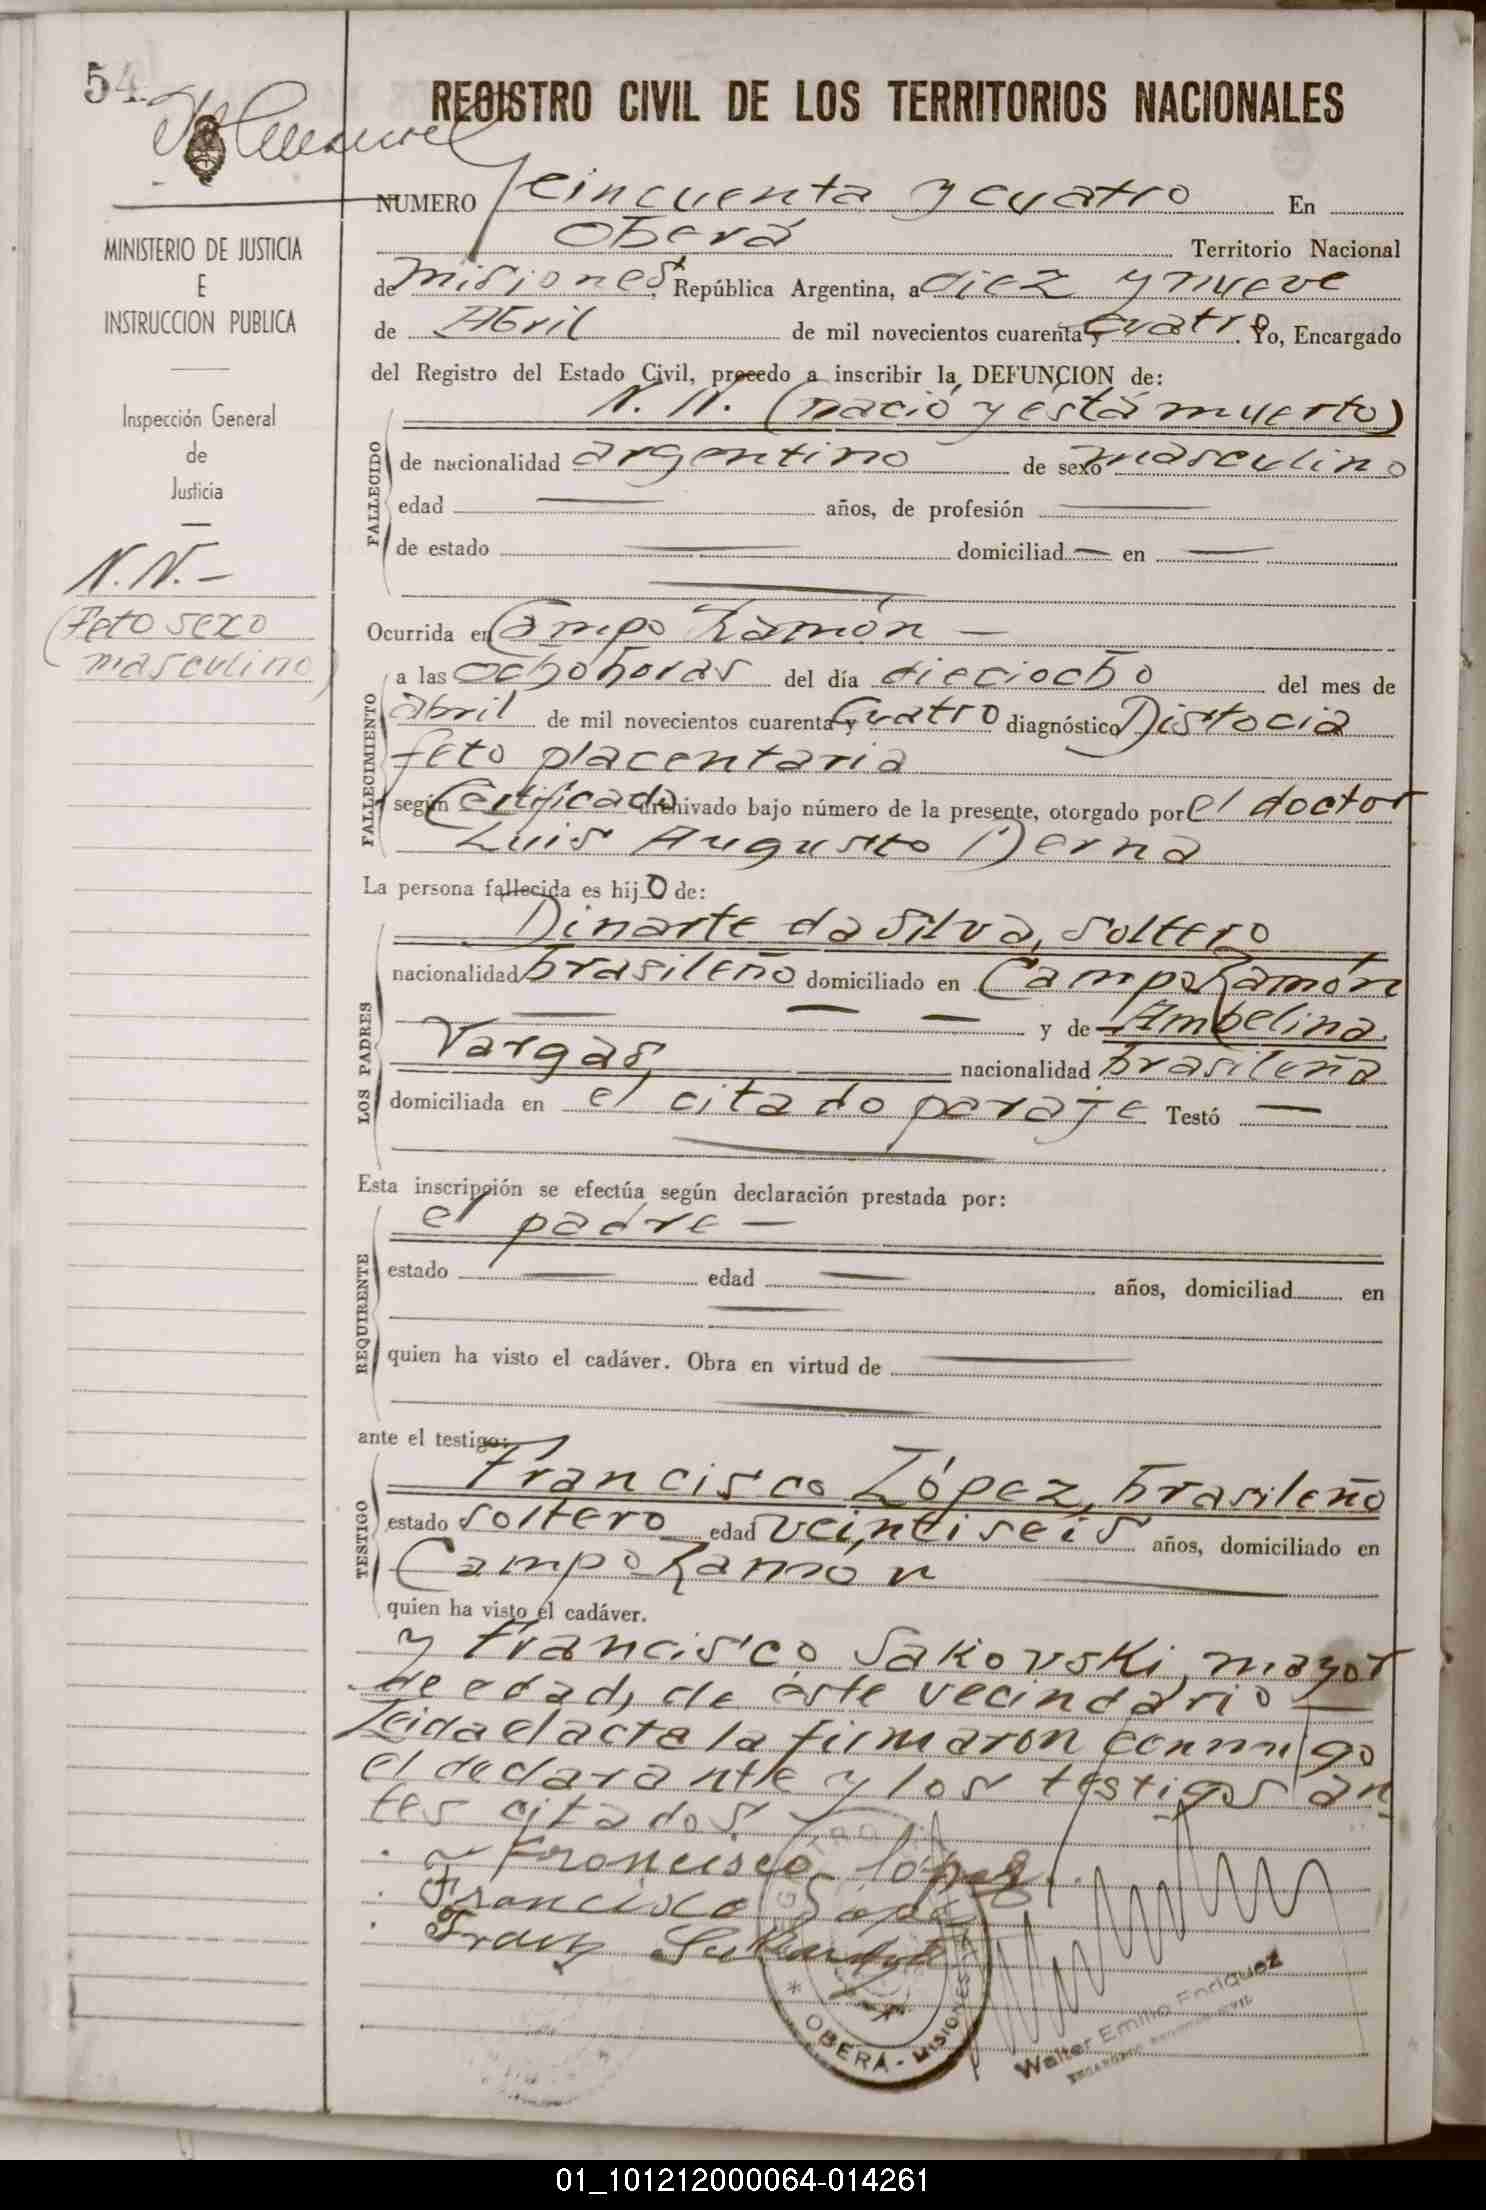 54
REGISTRO CIVIL DE LOS TERRITORIOS NACIONALES
MINISTERIO DE JUSTICIA
E
INSTRUCCION PUBLICA
Inspección General
de
Justicia
N.N.-
(Feto sexo
masculino)
NUMERO cincuenta y cuatro En
Oberá Territorio Nacional
de Misiones, República Argentina, a diez y nueve
de Abril de mil novecientos cuarenta y cuatro. Yo, Encargado
del Registro del Estado Civil, procedo a inscribir la DEFUNCION de:
N. N. (nació y está muerto)
FALLECIDO
de nacionalidad argentino de sexo masculino
edad — años, de profesión —
de estado — domiciliad — en —
Ocurrida en Campo Ramón —
FALLECIMIENTO
a las ocho horas del día dieciocho del mes de
abril de mil novecientos cuarenta y cuatro diagnóstico Distocia
feto placentaria
según Certificado archivado bajo número de la presente, otorgado por el doctor
Luis Augusto Derna
La persona fallecida es hijo de:
LOS PADRES
Dinarte da Silva, soltero
nacionalidad brasileño domiciliado en Campo Ramón
— — — y de Ambelina
Vargas, nacionalidad brasileña
domiciliada en el citado paraje Testó —
Esta inscripción se efectúa según declaración prestada por:
REQUIRENTE
el padre —
estado — edad — años, domiciliad en
quien ha visto el cadáver. Obra en virtud de —
ante el testigo:
TESTIGO
Francisco López, brasileño
estado soltero edad veintiseis años, domiciliado en
Campo Ramón
quien ha visto el cadáver.
y Francisco Sakovski, mayor
de edad, de éste vecindario —
Leida el acta la firmaron conmigo
el declarante y los testigos an
tes citados.
Francisco López
Francisco López
Franz
OBERÁ - MISIONES
Walter Emilio Enriquez
01_101212000064-014261